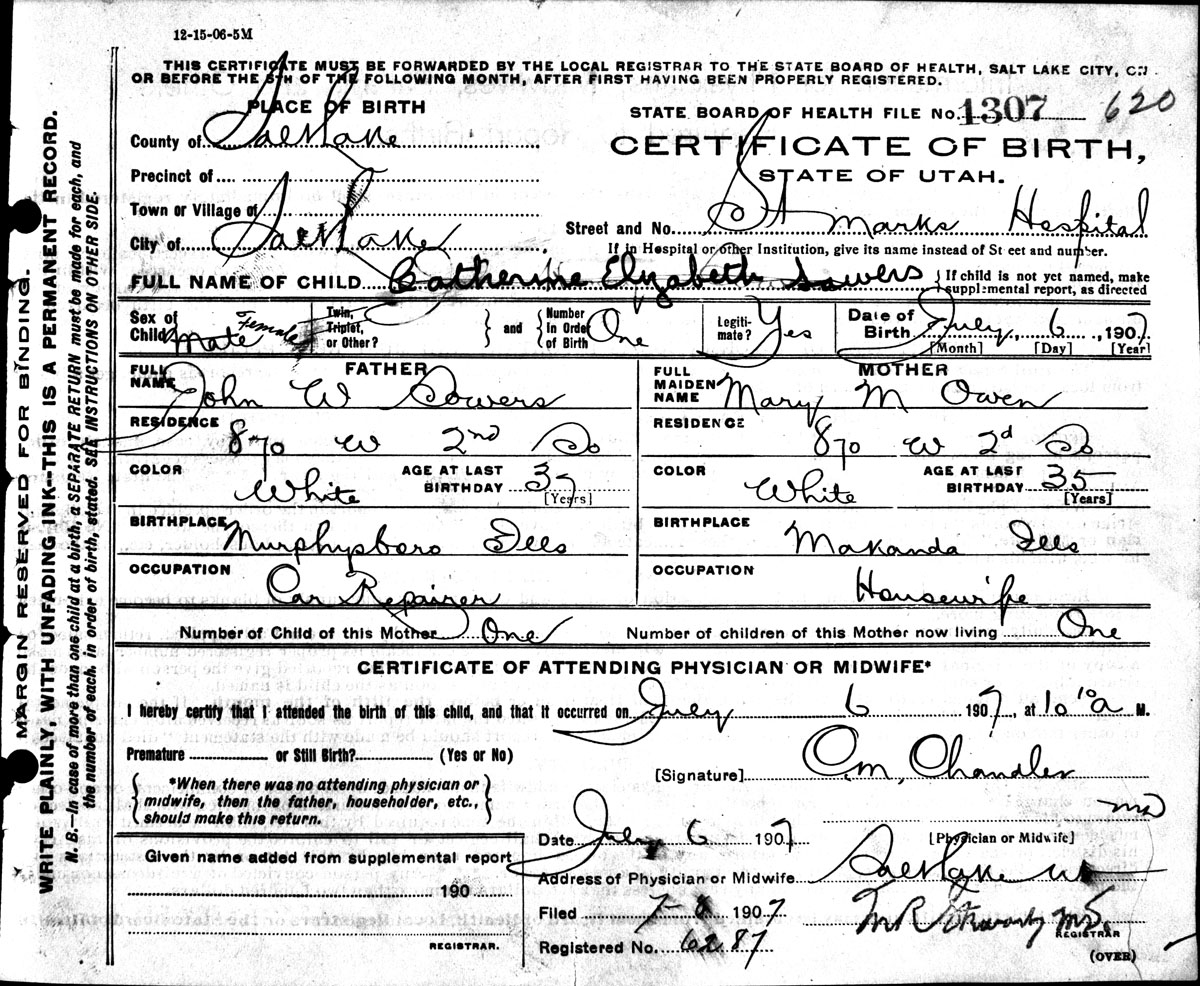 12-15-06-5M
THIS CERTIFICATE MUST BE FORWARDED BY THE LOCAL REGISTRAR TO THE STATE BOARD OF HEALTH, SALT LAKE CITY, ON
OR BEFORE THE 5TH OF THE FOLLOWING MONTH, AFTER FIRST HAVING BEEN PROPERLY REGISTERED.
PLACE OF BIRTH
County of Salt Lake
Precinct of
Town or Village of
City of Salt Lake
STATE BOARD OF HEALTH FILE No. 1307 620
CERTIFICATE OF BIRTH,
STATE OF UTAH.
Street and No. St Marks Hospital
If in Hospital or other Institution, give its name instead of Street and number.
FULL NAME OF CHILD Catherine Elizabeth Sowers { If child is not yet named, make supplemental report, as directed
Sex of Child Male Female Twin, Triplet, or Other? } and { Number in Order of Birth One Legitimate? Yes Date of Birth July 6, 1907
[Month] [Day] [Year]
FATHER
FULL NAME John W Sowers
RESIDENCE 870 W 2nd So
COLOR White AGE AT LAST BIRTHDAY 37 [Years]
BIRTHPLACE Murphysboro Ills
OCCUPATION Car Repairer
MOTHER
FULL MAIDEN NAME Mary M Owen
RESIDENCE 870 W 2d So
COLOR White AGE AT LAST BIRTHDAY 35 [Years]
BIRTHPLACE Makanda Ills
OCCUPATION Housewife
Number of Child of this Mother One Number of children of this Mother now living One
CERTIFICATE OF ATTENDING PHYSICIAN OR MIDWIFE*
I hereby certify that I attended the birth of this child, and that it occurred on July 6 1907, at 10 10 a M.
Premature or Still Birth? (Yes or No)
{ *When there was no attending physician or
midwife, then the father, householder, etc.,
should make this return. }
[Signature] C.M. Chandler
MD
[Physician or Midwife]
Given name added from supplemental report
190
REGISTRAR.
Date July 6 1907
Address of Physician or Midwife Salt Lake
Filed 7-8 1907
M.D.
REGISTRAR
Registered No. 6287
(OVER)
MARGIN RESERVED FOR BINDING.
WRITE PLAINLY, WITH UNFADING INK--THIS IS A PERMANENT RECORD.
N. B.--In case of more than one child at a birth, a SEPARATE RETURN must be made for each, and
the number of each, in order of birth, stated. SEE INSTRUCTIONS ON OTHER SIDE.